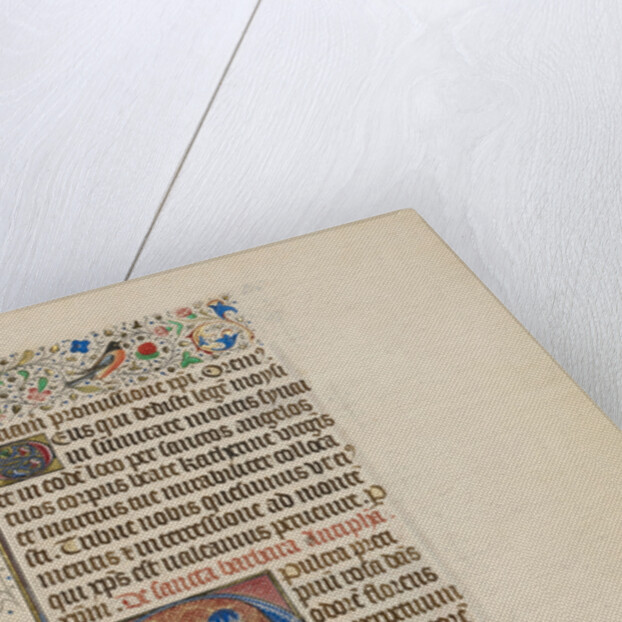 nam promissione xpi. Orem⁹
Deus qui dedisti legē moysi
in sūmitate montis synai
et in eodē loco per sanctos angelos
tuos corpus beate katherine virgis
et martiris tue mirabiliter colloca
sti. Tribue nobis quesumus vt ei⁹
meritis & intercessione ad monte
qui xp̄s est valeamus peruenire. P
xp̄m. De sancta barbara Anapha.
Pulcra preci
puū rosa dās
odorē florens